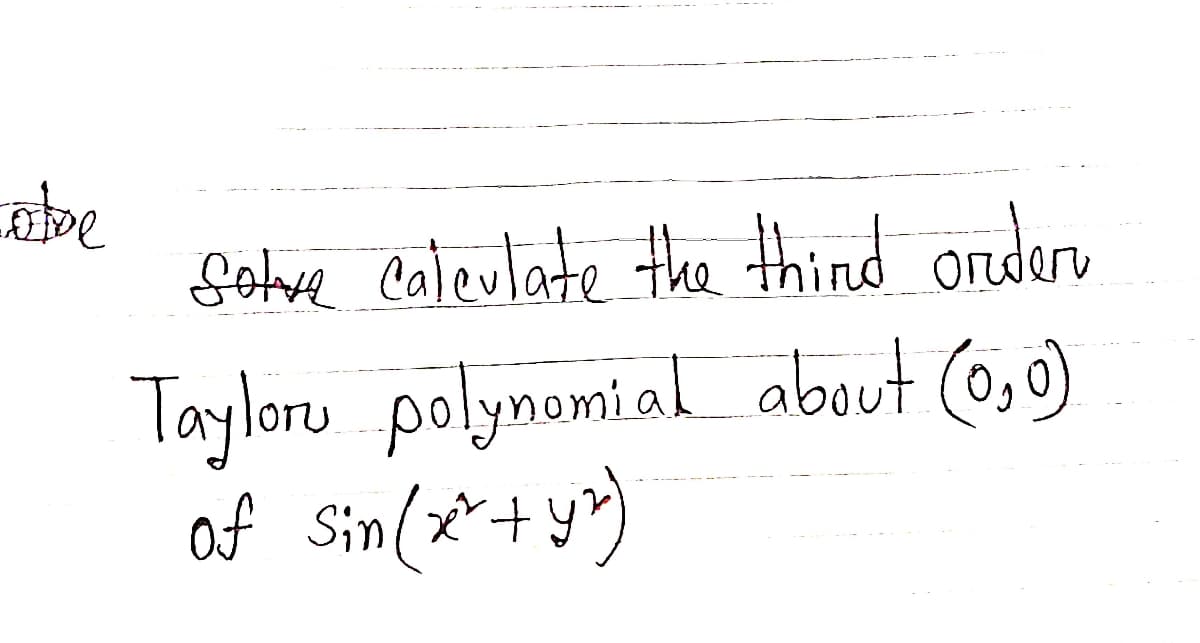 Solve
Solve Calculate the third order
Taylor polynomial about (0,0)
of Sin(x²+y²)